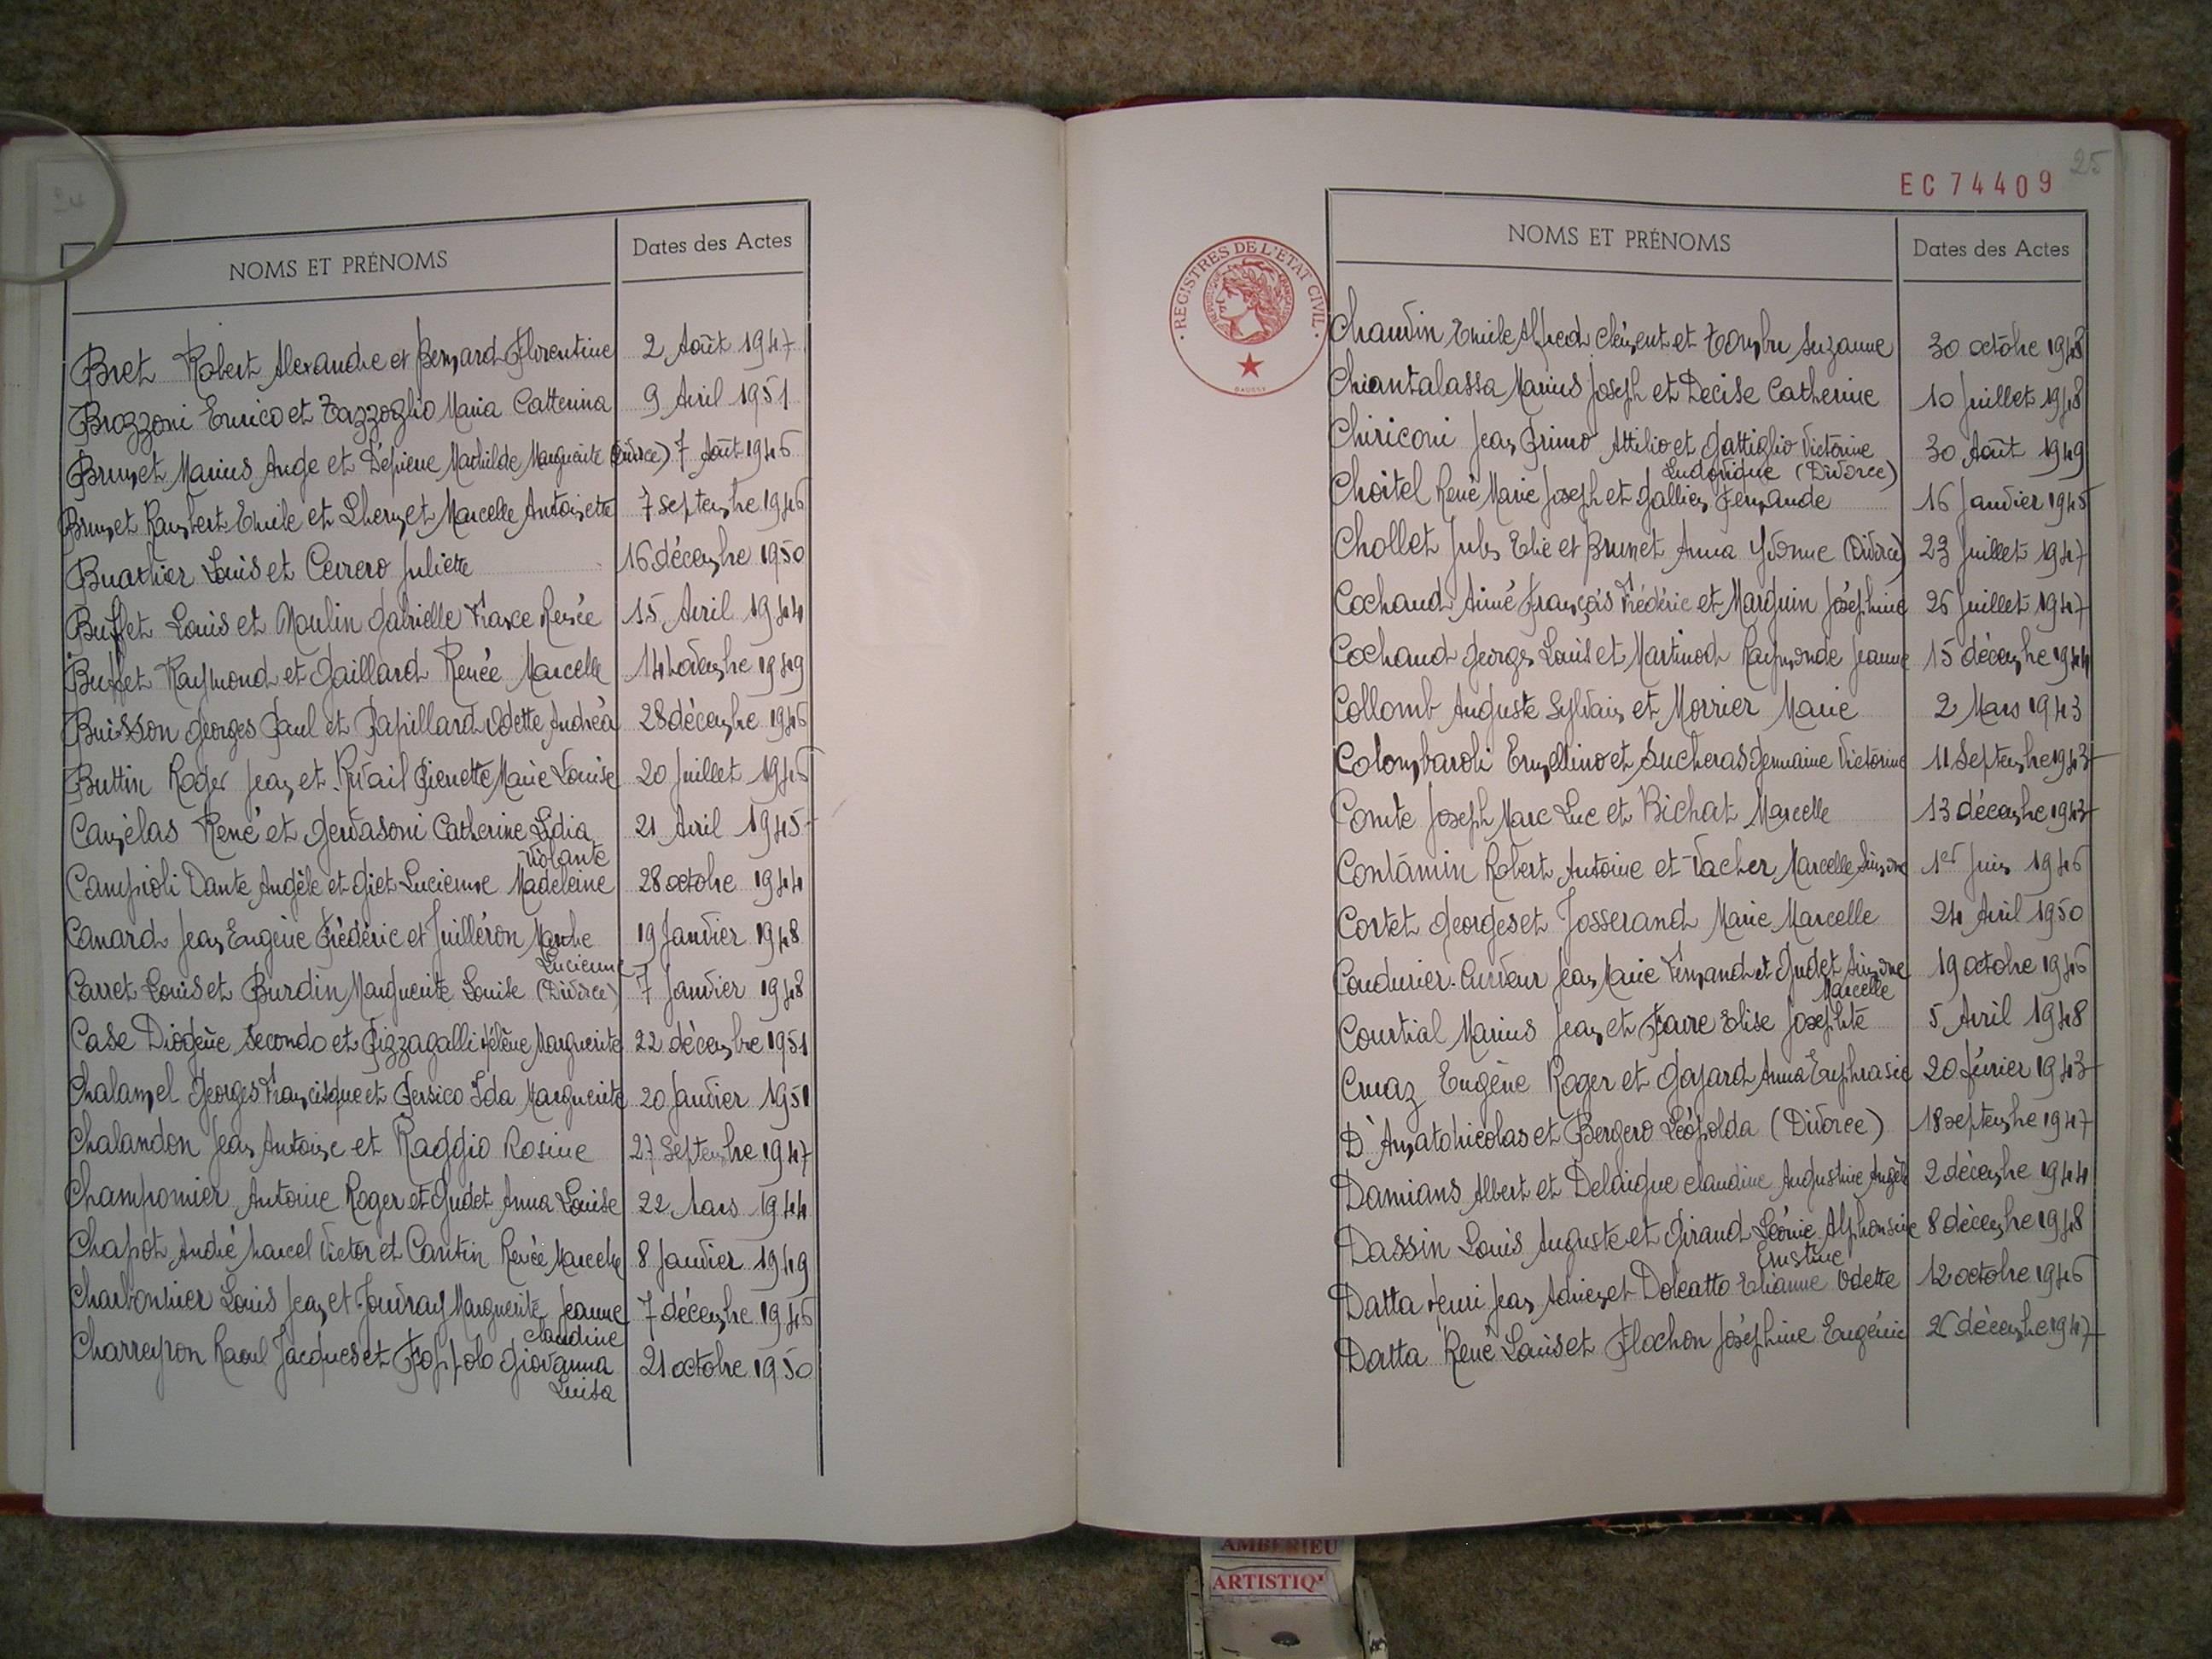 24
NOMS ET PRÉNOMS Dates des Actes
Bret Robert Alexandre et Bernard Florentine 2 Août 1947
Brozzoni Enrico et Tazzoglio Maria Catterina 9 Avril 1951
Brunet Marius Ange et Dépierre Mathilde Marguerite (Divorce) 7 Août 1946
Brunet Rambert Emile et Lhermet Marcelle Antoinette 7 septembre 1946
Buathier Louis et Cerrero Juliette 16 décembre 1950
Buffet Louis et Moulin Gabrielle France Renée 15 Avril 1944
Buffet Raymond et Gaillard Renée Marcelle 14 Novembre 1949
Buisson Georges Paul et Papillard Odette Andréa 28 décembre 1946
Buttin Roger Jean et Rivail Pierrette Marie Louise 20 Juillet 1946
Camélas René et Gervasoni Catherine Lidia 21 Avril 1945
Violante
Campioli Dante Angèle et Giet Lucienne Madeleine 28 octobre 1944
Canard Jean Eugène Frédéric et Juilléron Marthe 19 Janvier 1948
Lucienne
Carret Louis et Burdin Marguerite Louise (Divorce) 7 Janvier 1948
Case Diogène Secondo et Pizzagalli Hélène Marguerite 22 décembre 1951
Chalamel Georges Francisque et Persico Ida Marguerite 20 Janvier 1951
Chalandon Jean Antoine et Raggio Rosine 27 Septembre 1947
Championnier Antoine Roger et Gudet Anna Louise 22 Mars 1944
Chapot André Marcel Victor et Cantin Renée Marcelle 8 Janvier 1949
Charbonnier Louis Jean et Jouvray Marguerite Jeanne 7 décembre 1946
Claudine
Charreyron Raoul Jacques et Foppolo Giovanna 21 octobre 1950
Luisa
25
EC 74409
REGISTRES DE L'ETAT CIVIL
REPUBLIQUE FRANÇAISE
NOMS ET PRÉNOMS Dates des Actes
Chanvin Emile Alfred Clément et Suzanne 30 octobre 1948
Chiantalassa Marius Joseph et Decise Catherine 10 Juillet 1948
Chiriconi Jean Primo Attilio et Gattiglio Victorine 30 Août 1949
Ludovique (Divorce)
Choitel René Marie Joseph et Gallien Fernande 16 Janvier 1945
Chollet Jules Elie et Brunet Anna Yvonne (Divorce) 23 Juillet 1947
Cochaud Aimé François Frédéric et Marguin Joséphine 26 Juillet 1947
Cochaud Georges Louis et Martinod Raymonde Jeanne 15 décembre 1944
Collomb Auguste Sylvain et Morrier Marie 2 Mars 1943
Colombaroli Ermellino et Sucheras Germaine Victorine 11 Septembre 1943
Comte Joseph Marc Luc et Bichat Marcelle 13 décembre 1943
Contamin Robert Antoine et Vacher Marcelle Simone 1er Juin 1946
Cortet Georges et Josserand Marie Marcelle 24 Avril 1950
Coudurier-Curveur Jean Marie Fernand et Gudet Simone 19 octobre 1946
Marcelle
Courtial Marius Jean et Favre Elise Josephte 5 Avril 1948
Cruaz Eugène Roger et Goyard Anna Euphrasie 20 février 1943
D'Amato Nicolas et Bergero Léopolda (Divorce) 18 septembre 1947
Damians Albert et Delaigue Claudine Augustine Angèle 2 décembre 1944
Dassin Louis Auguste et Giraud Léonie Alphonsine 8 décembre 1948
Ernestine
Datta Henri Jean Adrien et Doleatto Elianne Odette 12 octobre 1946
Datta René Louis et Flochon Joséphine Eugénie 26 décembre 1947
AMBERIEU
ARTISTIQ